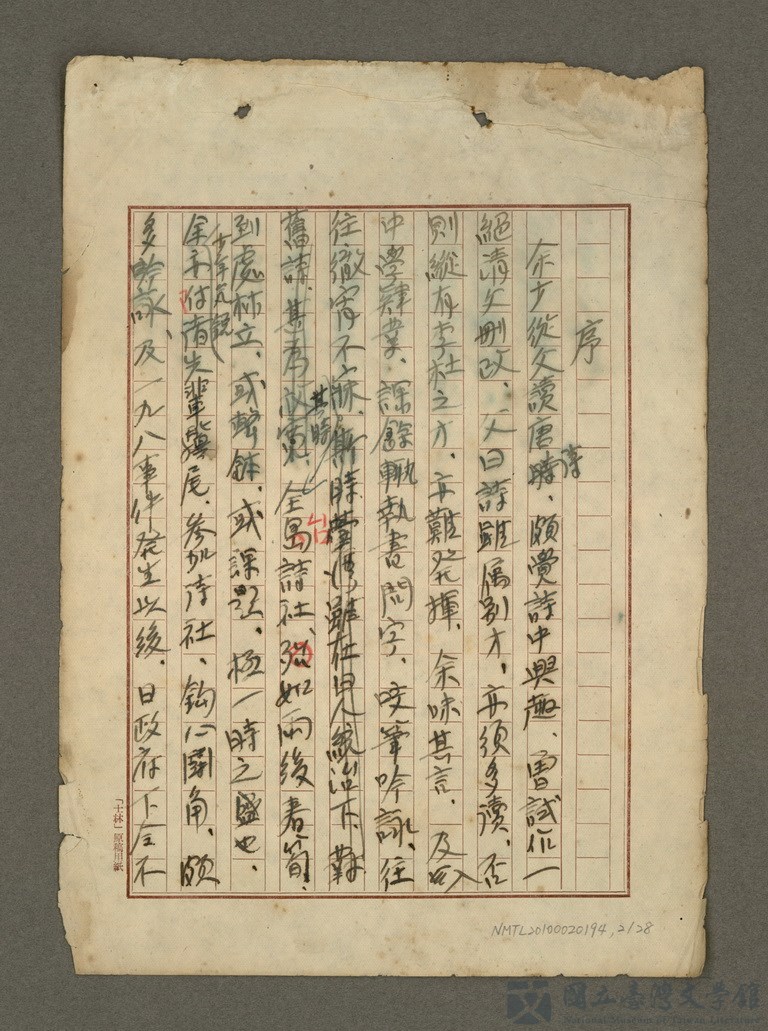 序
余少從父讀唐時、頗覺詩中興趣、曾試作一
詩
絕清父刪改、父曰詩雖屬別才、亦須多讀、否
則縱有李杜之才、亦難發揮、余味其言、及
中學肄業、課餘輒執書問字、咬筆吟詠、往
往徹宵不寐、斯時臺灣雖在日人統治下、對
其時
舊詩、甚為 全島詩社、猶如雨後春筍、
台
到處林立、或擊鉢、或課題、極一時之盛也、
少年
余 付 先輩驥尾、參加詩社、鈎心鬪角、頗
多吟詠、及一九八事件發生以後、日政府下令不
「士林」原稿用紙
NMTL20100020194, 2/28
國立臺灣文學館
National Museum of Taiwan Literature